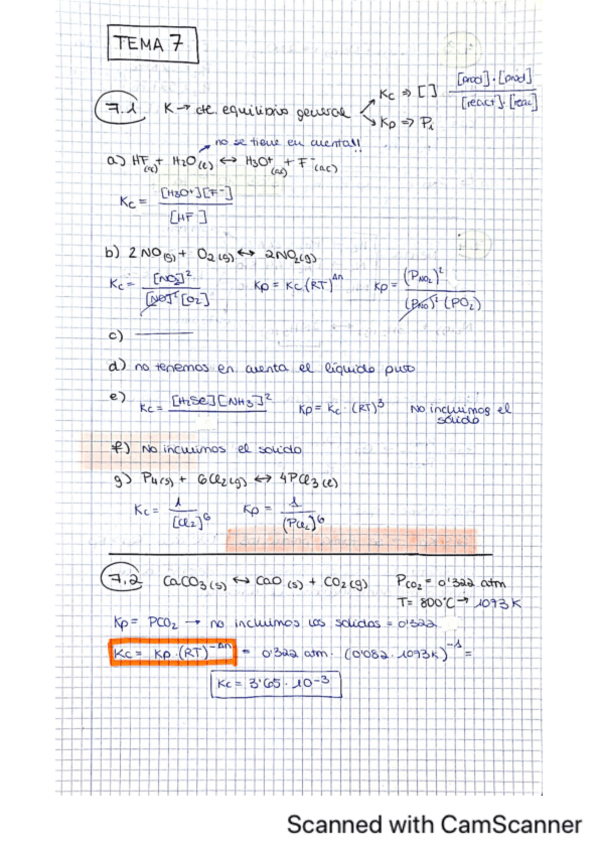 TEMA 7
7.1 K → cte equilibrio general
Kc ⇒ [ ] [prod]·[prod] / [react]·[reac]
Kp ⇒ Pi
no se tiene en cuenta!!
a) HF(ac) + H2O(l) ↔ H3O+(ac) + F-(ac)
Kc = [H3O+][F-] / [HF]
b) 2NO(g) + O2(g) ↔ 2NO2(g)
Kc = [NO2]² / [NO]² [O2] Kp = Kc (RT)^Δn Kp = (PNO2)² / (PNO)² (PO2)
c)
d) no tenemos en cuenta el líquido puro
e) Kc = [H2Se][NH3]² Kp = Kc · (RT)³ No incluimos el
sólido
f) No incluimos el sólido
g) P4(s) + 6Cl2(g) ↔ 4PCl3(l)
Kc = 1 / [Cl2]⁶ Kp = 1 / (PCl2)⁶
7.2 CaCO3(s) ↔ CaO(s) + CO2(g) PCO2 = 0'322 atm
T = 800°C → 1073K
Kp = PCO2 → no incluimos los sólidos = 0'322
Kc = Kp·(RT)^-Δn = 0'322 atm · (0'082 · 1073K)^-1 =
Kc = 3'65 · 10^-3
Scanned with CamScanner